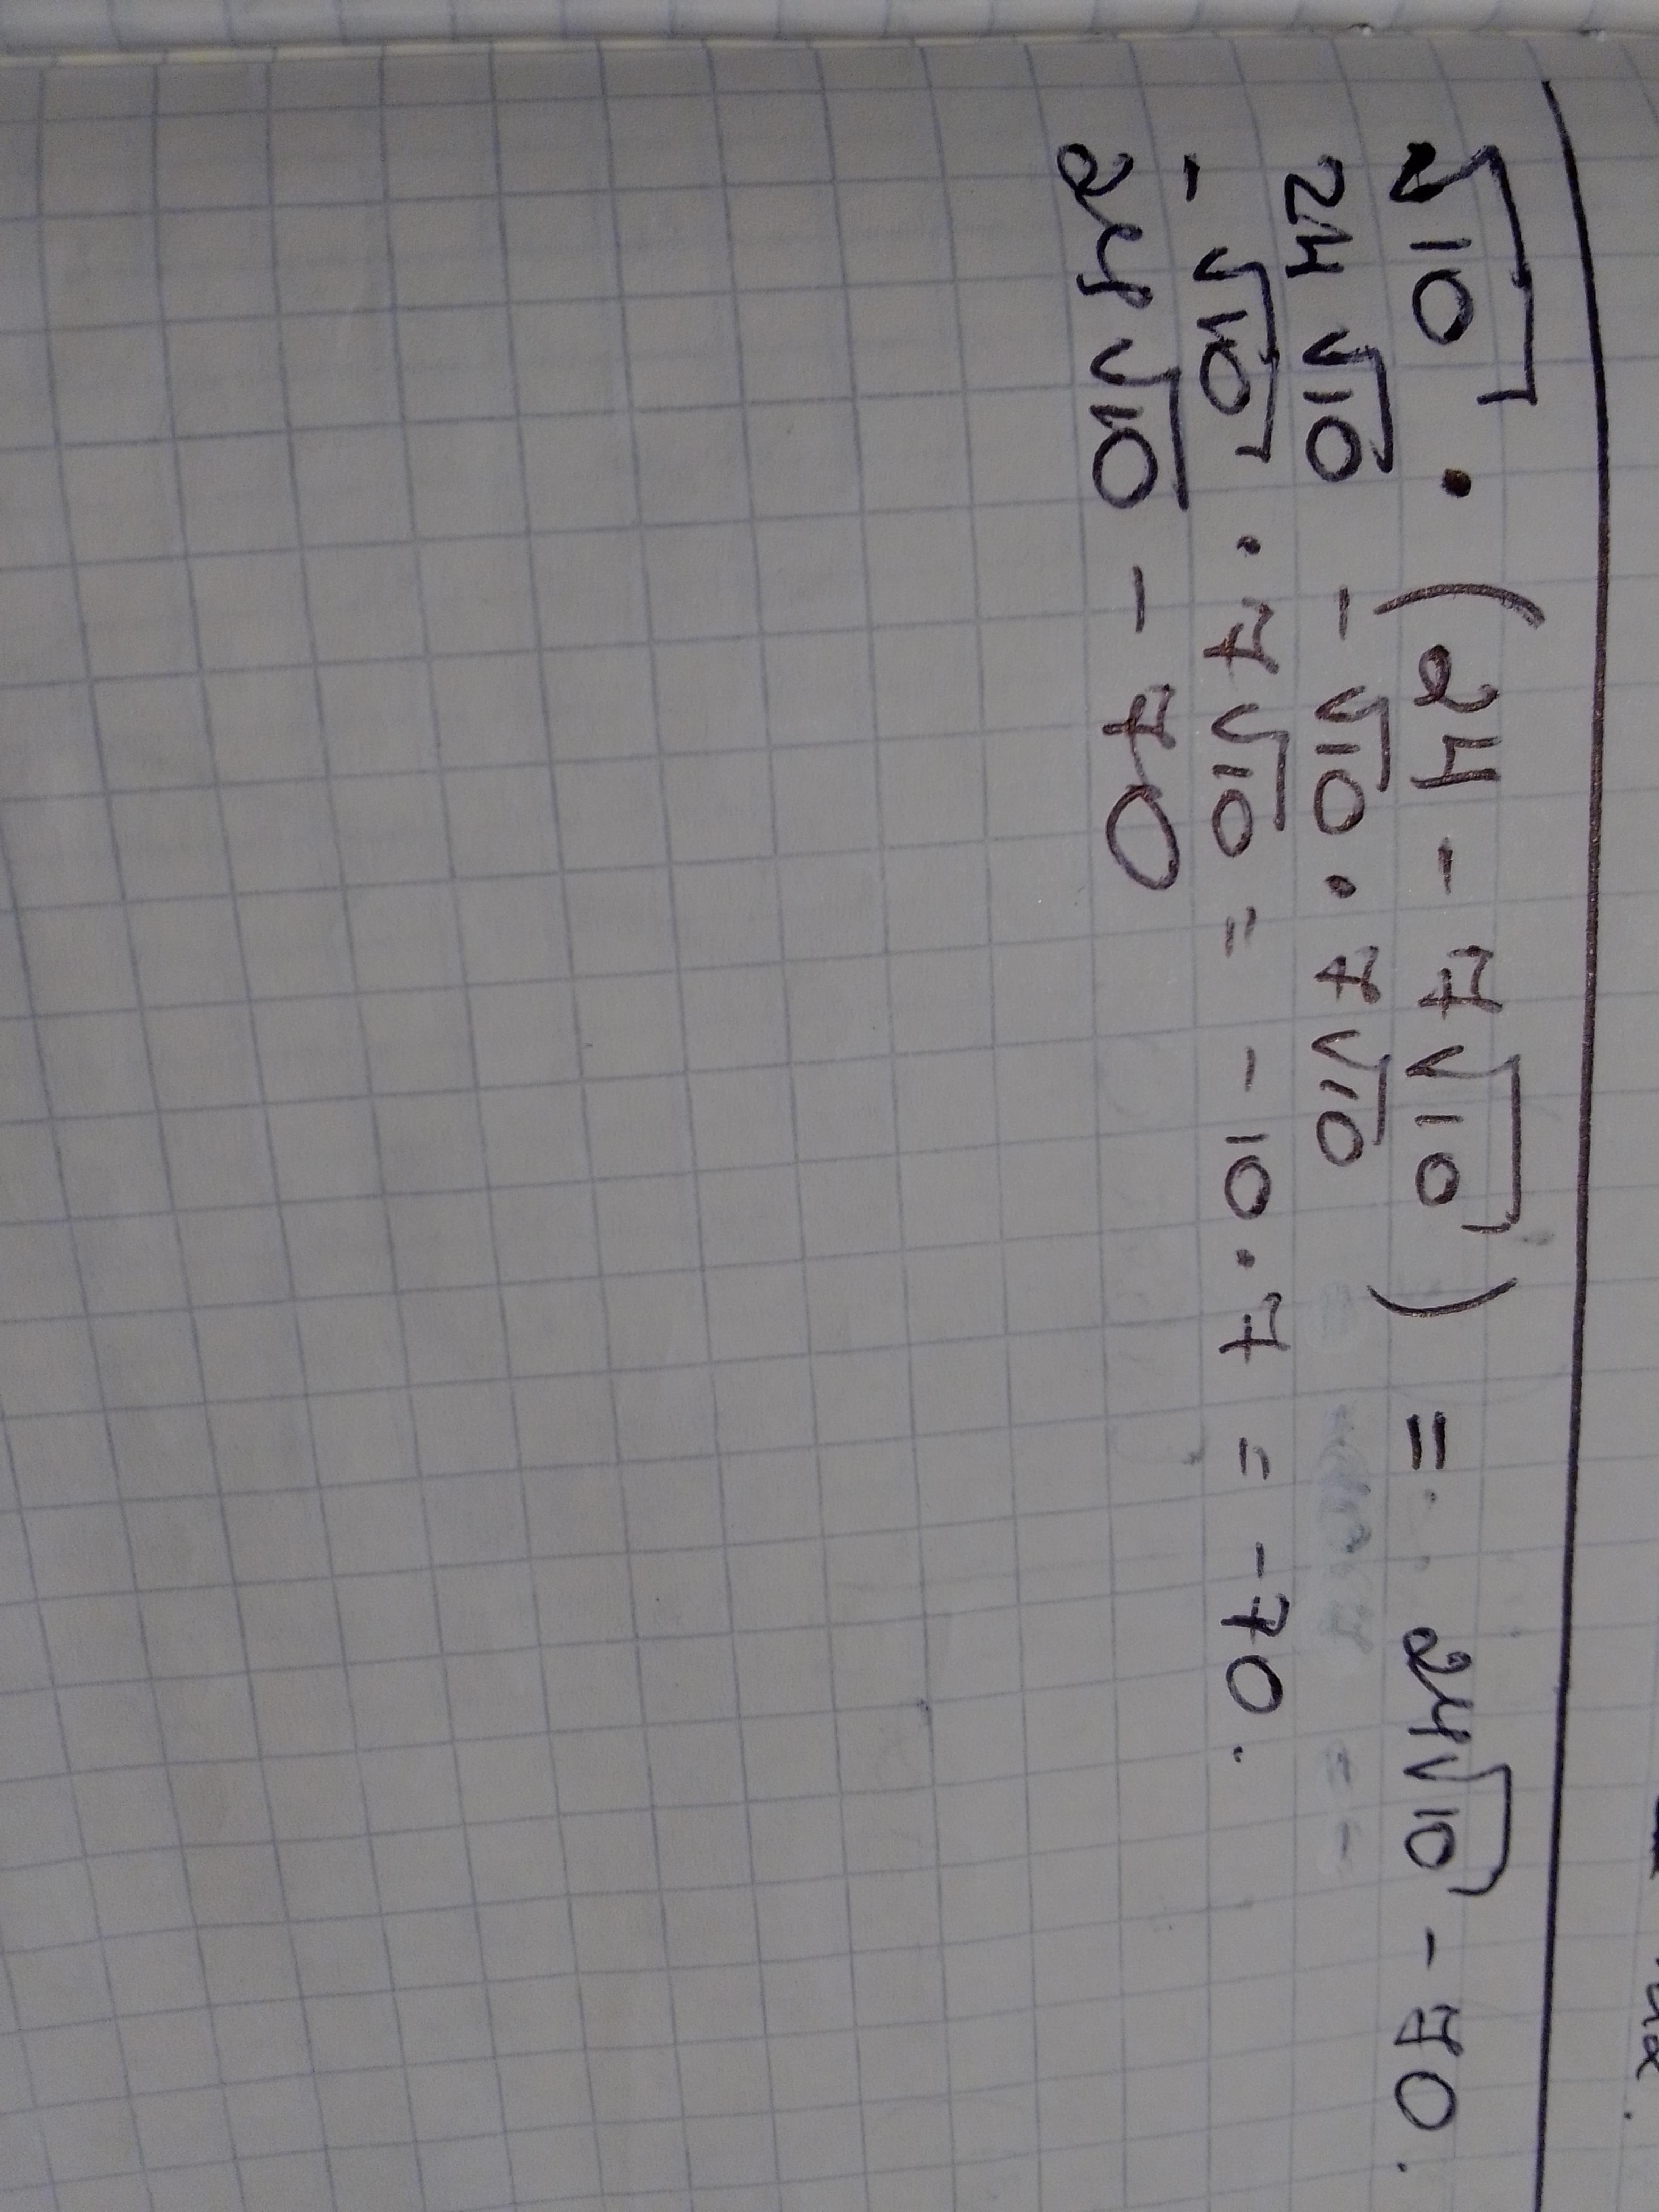 √10 · (24 - 7√10) = 24√10 - 70.
24√10 - √10 · 7√10
- √10 · 7√10 = - 10 · 7 = - 70.
24√10 - 70